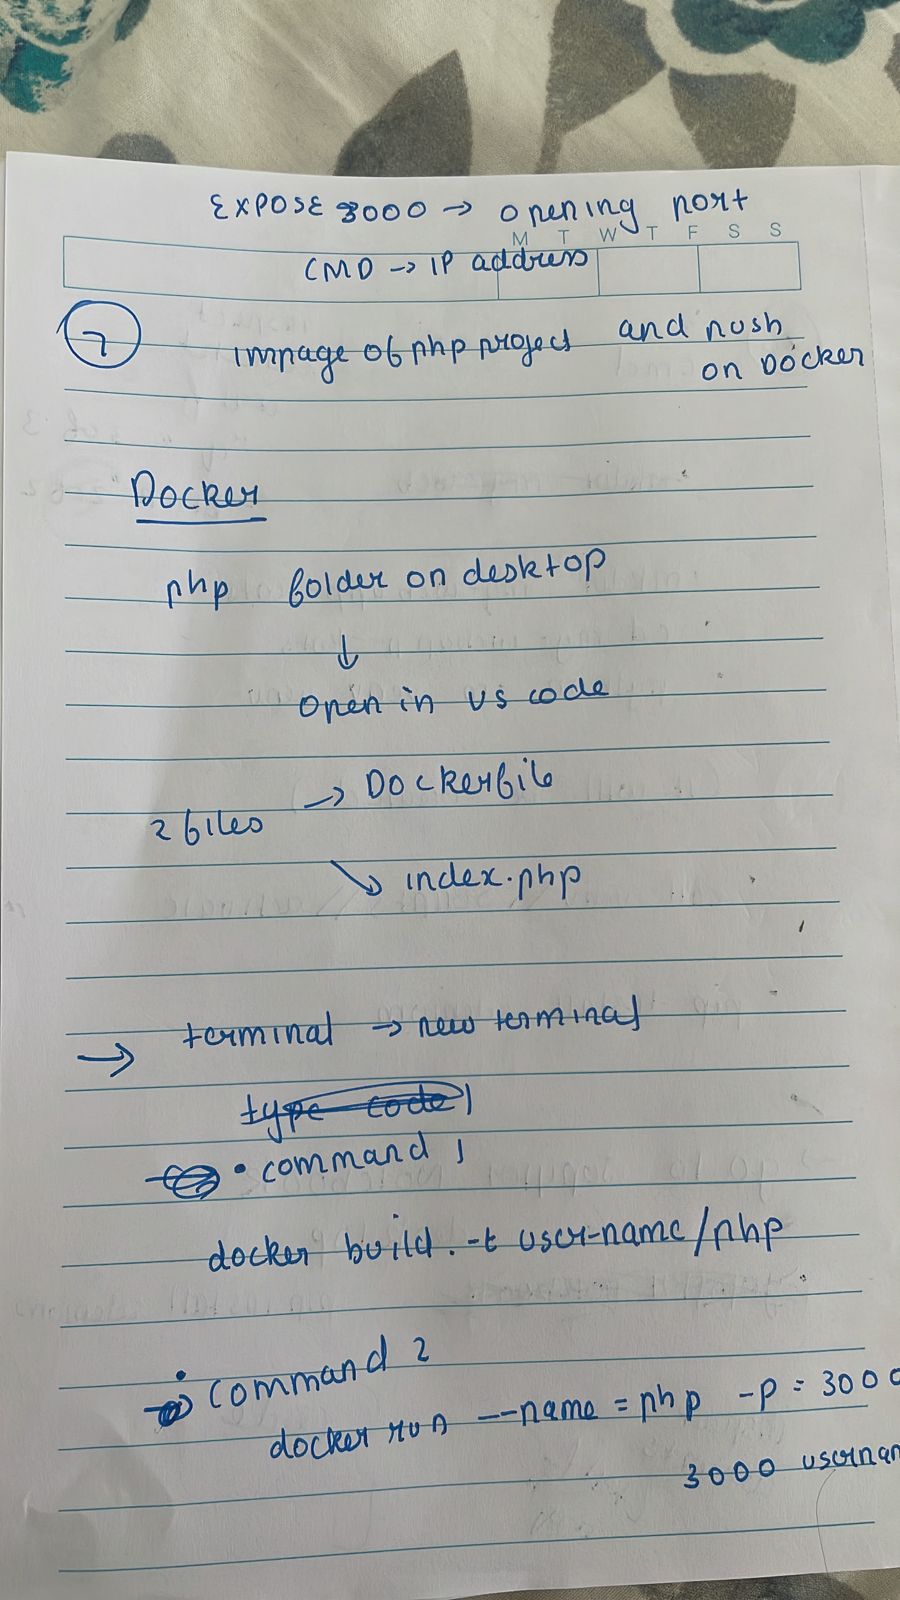 EXPOSE 3000 → opening port
M T W T F S S
CMD → IP address
7 impage of php project and push
on Docker
Docker
php folder on desktop
↓
open in vs code
→ Dockerfile
2 files
↘ index.php
→ terminal → new terminal
• command 1
docker build . -t user-name/php
• command 2
docker run --name = php -p = 3000
3000 usernam